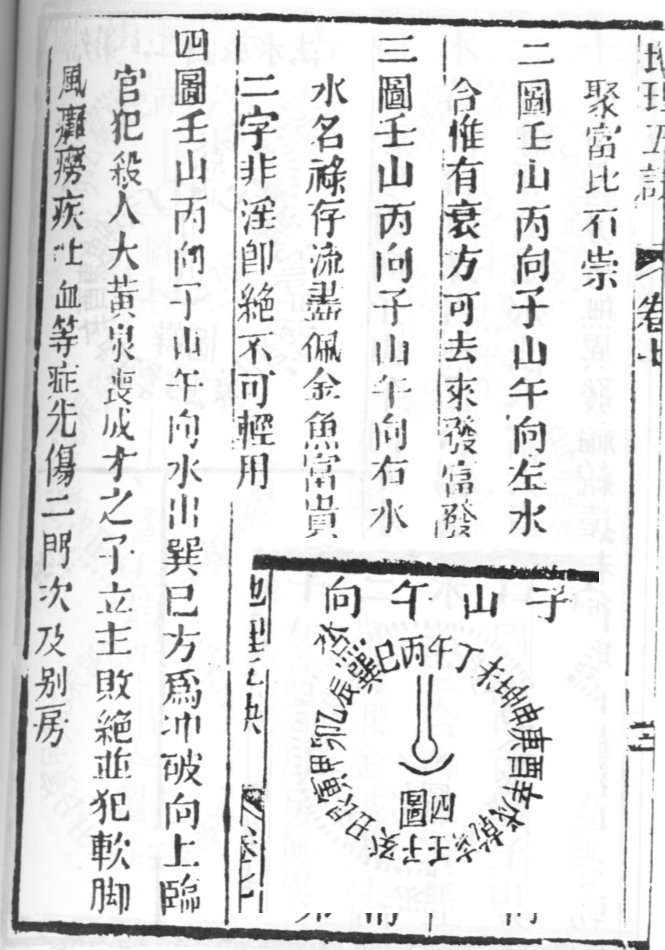 地理五訣 卷七
聚富比石崇
二圖壬山丙向子山午向左水
合惟有衰方可去來發富發
三圖壬山丙向子山午向右水
水名祿存流盡佩金魚富貴
二字非淫卽絕不可輕用
四圖壬山丙向子山午向水出巽巳方爲冲破向上臨
官犯殺人大黃泉喪成才之子立主敗絕並犯軟脚
風癱癆疾吐血等症先傷二門次及别房
子山午向
巽巳丙午丁未坤申庚酉辛戌乾亥壬子癸丑艮寅甲卯乙辰
四圖
地理五訣 卷七
三